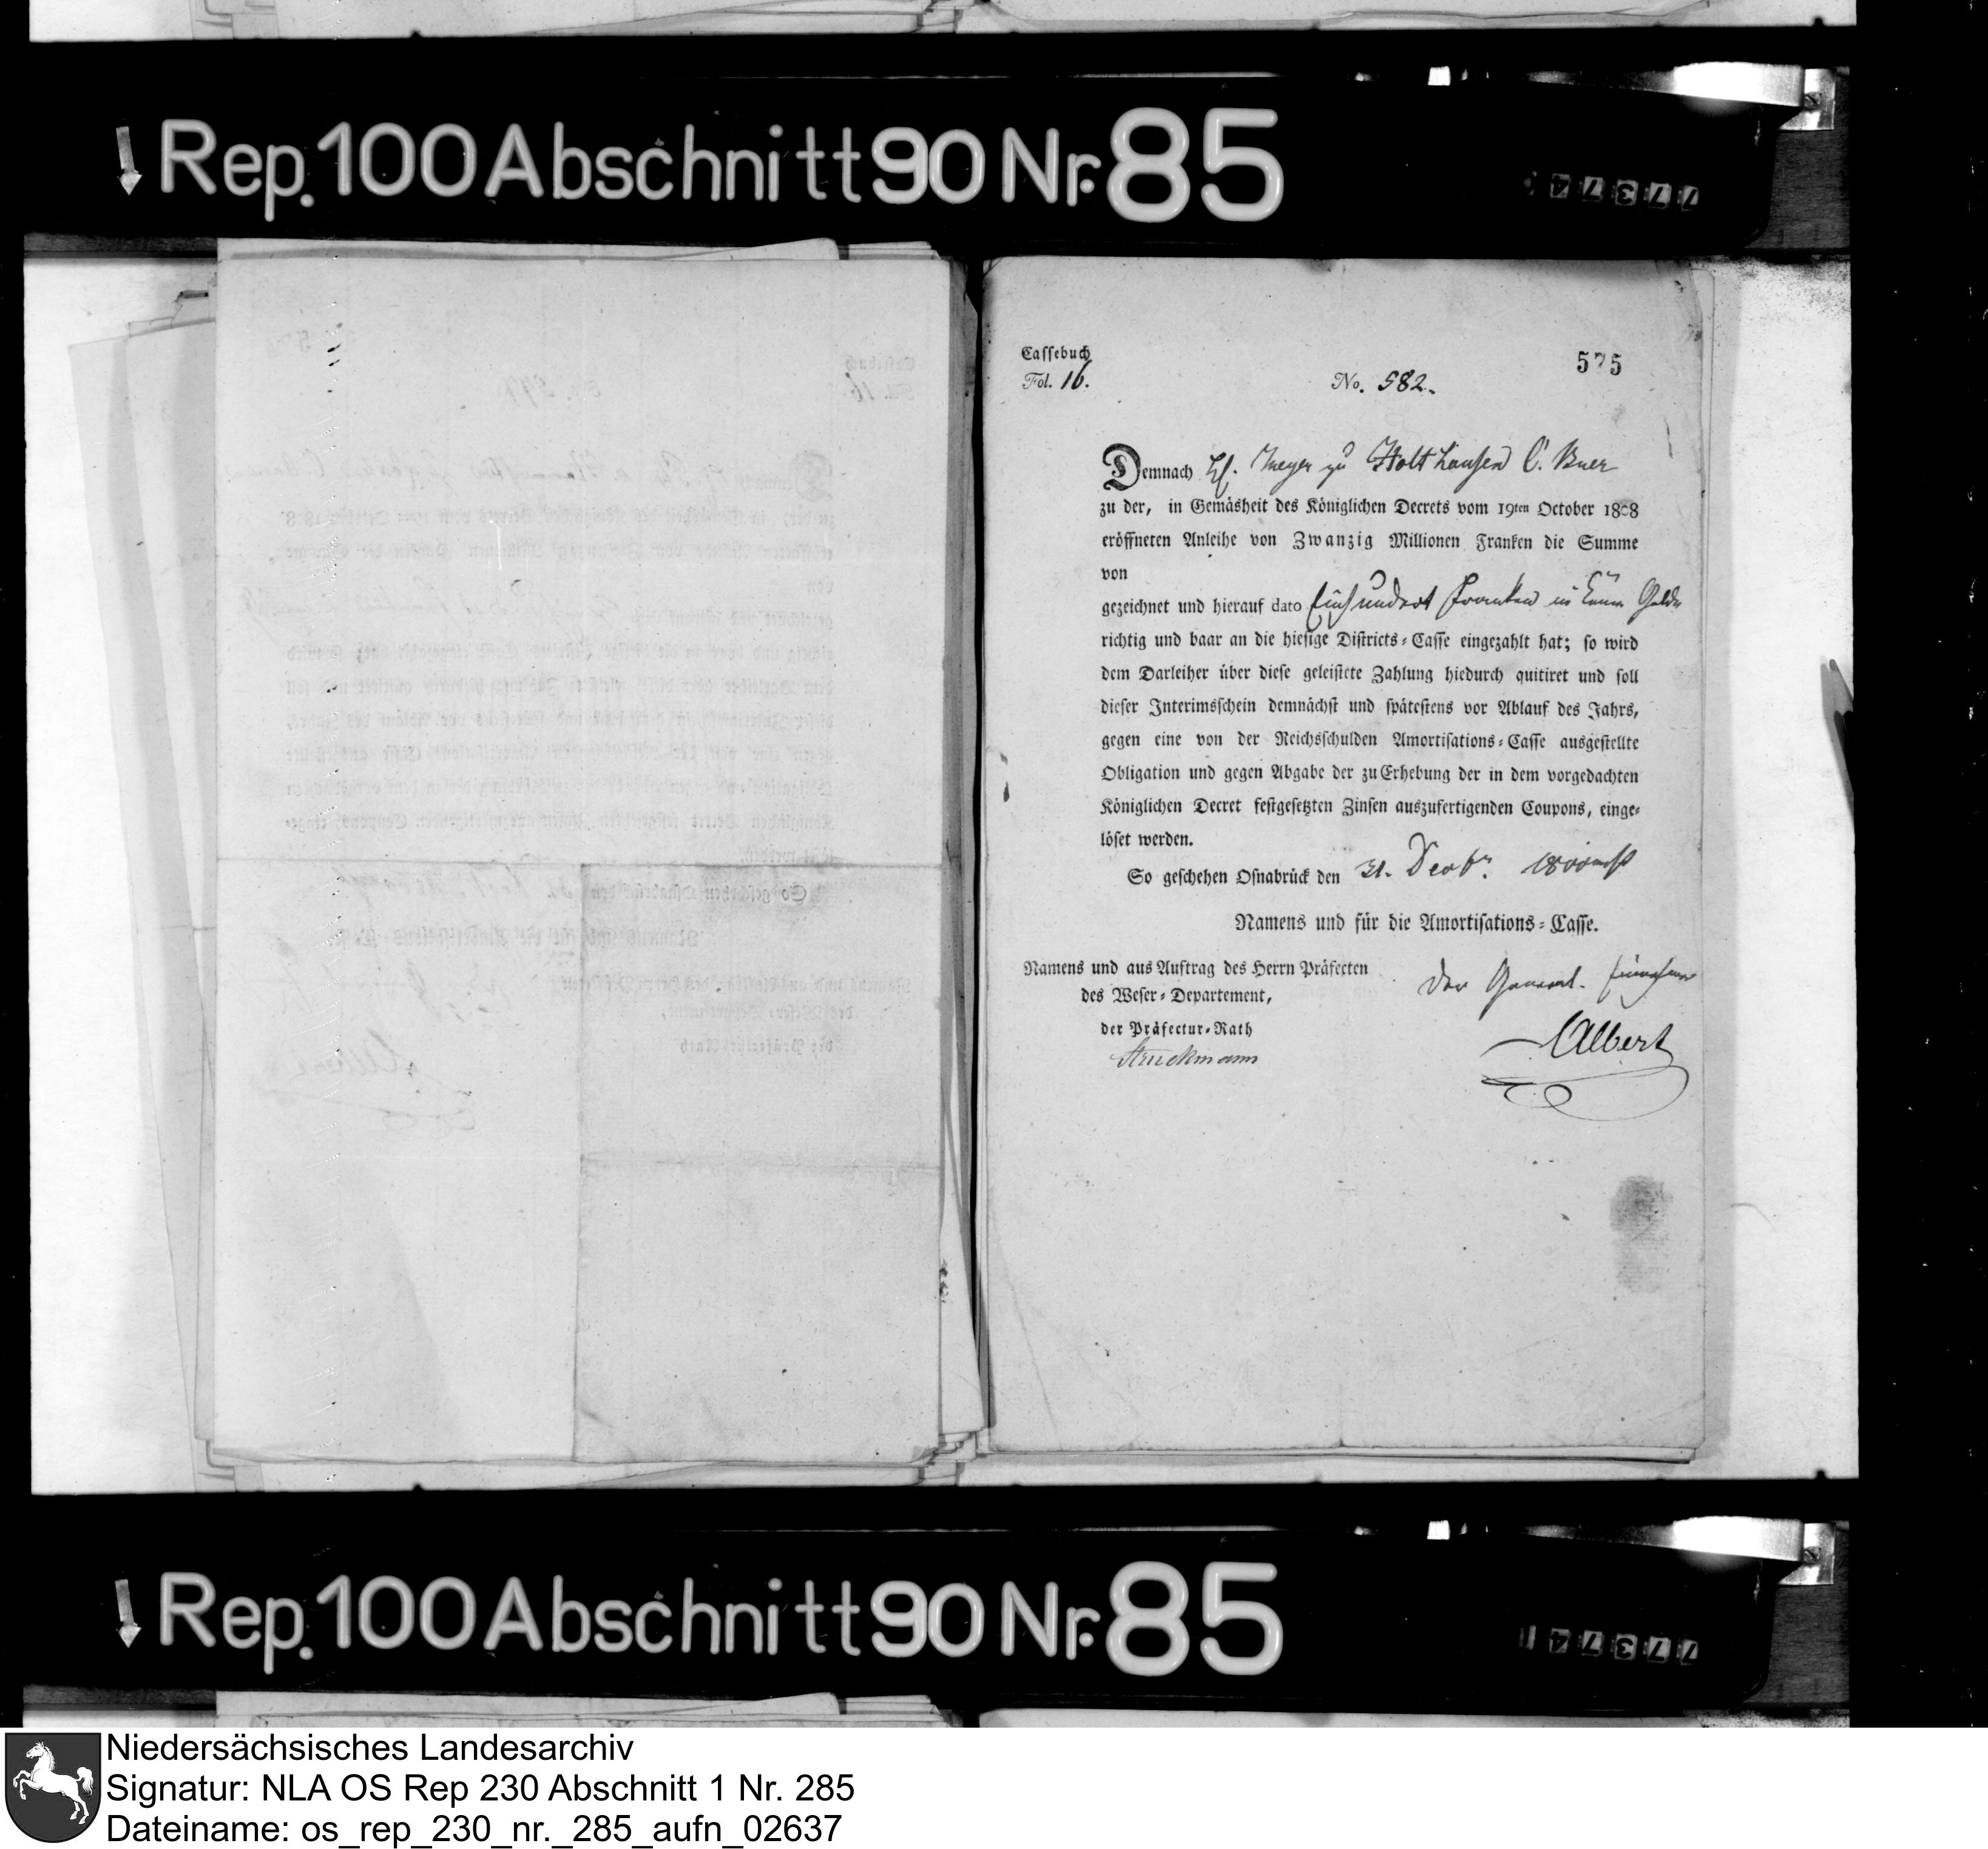 Rep. 100 Abschnitt 90 Nr. 85
77374
Cassebuch
Fol. 16.
No. 582.
575
Demnach Hf. Meyer zu Holthausen C. Buer
zu der, in Gemäsheit des Königlichen Decrets vom 19ten October 1808
eröffneten Anleihe von Zwanzig Millionen Franken die Summe
von
gezeichnet und hierauf dato Einhundert Franken in Gelde
richtig und baar an die hiesige Districts-Casse eingezahlt hat; so wird
dem Darleiher über diese geleistete Zahlung hiedurch quitiret und soll
dieser Interimsschein demnächst und spätestens vor Ablauf des Jahrs,
gegen eine von der Reichsschulden Amortisations-Casse ausgestellte
Obligation und gegen Abgabe der zu Erhebung der in dem vorgedachten
Königlichen Decret festgesetzten Zinsen auszufertigenden Coupons, einge-
löset werden.
So geschehen Osnabrück den 31. Decbr.
Namens und für die Amortisations-Casse.
Namens und aus Auftrag des Herrn Präfecten
des Weser-Departement,
der Präfectur-Rath
Struckmann
Der General-Einnehmer
Albert
Rep. 100 Abschnitt 90 Nr. 85
77374
Niedersächsisches Landesarchiv
Signatur: NLA OS Rep 230 Abschnitt 1 Nr. 285
Dateiname: os_rep_230_nr._285_aufn_02637